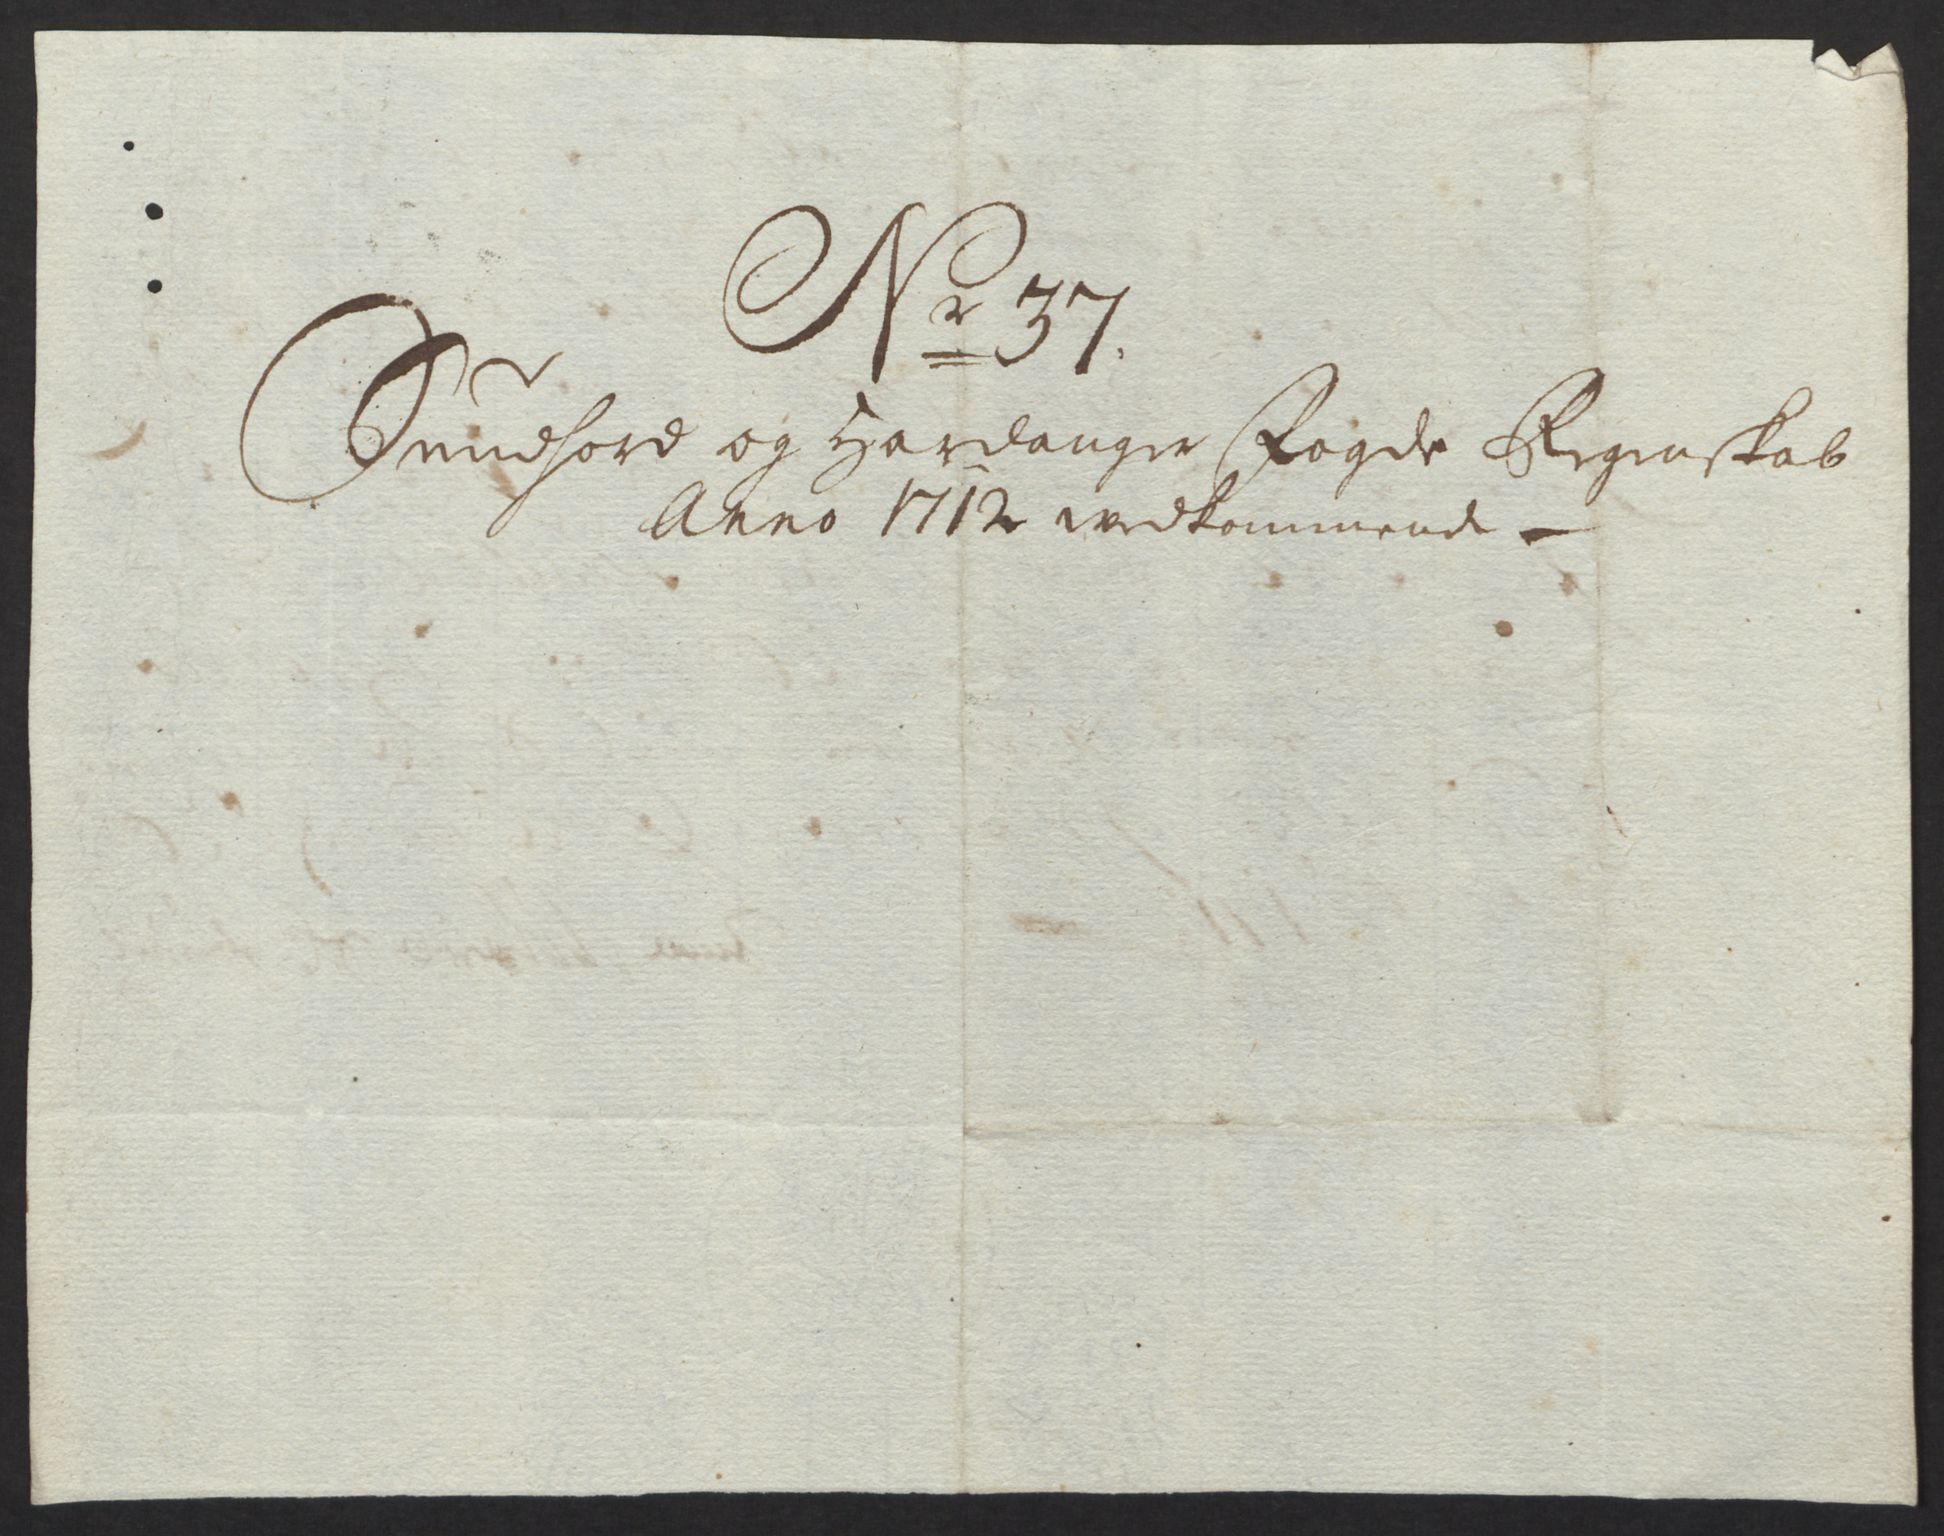 Nr 37.
Sundhord og Hardanger Fogde Regenskab
Anno 1712 vedkommende –